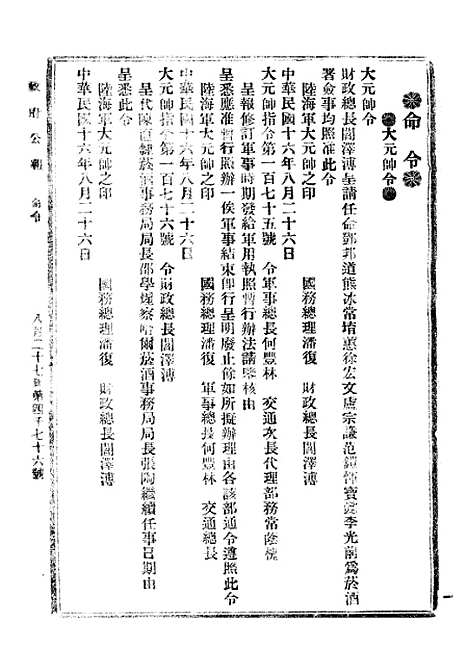 命令
大元帥令
大元帥令
財政總長閻澤溥呈請任命鄧邦道熊冰常堉蕙徐宏文盧宗謙范鎧 寶 李光 為菸酒
署僉事均照准此令
陸海軍大元帥之印　國務總理潘復　財政總長閻澤溥
中華民國十六年八月二十六日
大元帥指令第一百七十五號　令軍事總長何豐林　交通次長代理部務常蔭槐
呈報修訂軍事時期發給軍用執照暫行辦法請鑒核由
呈悉應准暫行照辦一俟軍事結束即行呈明廢止餘如所擬辦理由各該部通令遵照此令
陸海軍大元帥之印　國務總理潘復　軍事總長何豐林　交通總長
中華民國十六年八月二十六日
大元帥指令第一百七十六號　令財政總長閻澤溥
呈代陳直隸菸酒事務局局長邵學煃察哈爾菸酒事務局局長張陶繼續任事日期由
呈悉此令
陸海軍大元帥之印　國務總理潘復　財政總長閻澤溥
中華民國十六年八月二十六日
政府公報　命令
八月二十七日第四千七十六號